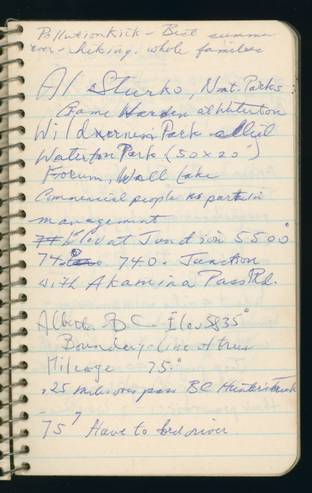 Pollution Kick - Best summer
ever - hiking. whole families
Al Sturko, Nat. Parks
Game Warden at Waterton
Wilderness Park
Waterton Park (50 x 20)
Forum, Wall Lake
Commercial people no part in
management
Elev at Junction 5500
74. 740. Junction
with Akamina Pass Rd.
Alberta BC Elev 5835
Boundary - line of trees
Mileage 75.
.25 miles over pass BC Hunters
75 Have to ford river